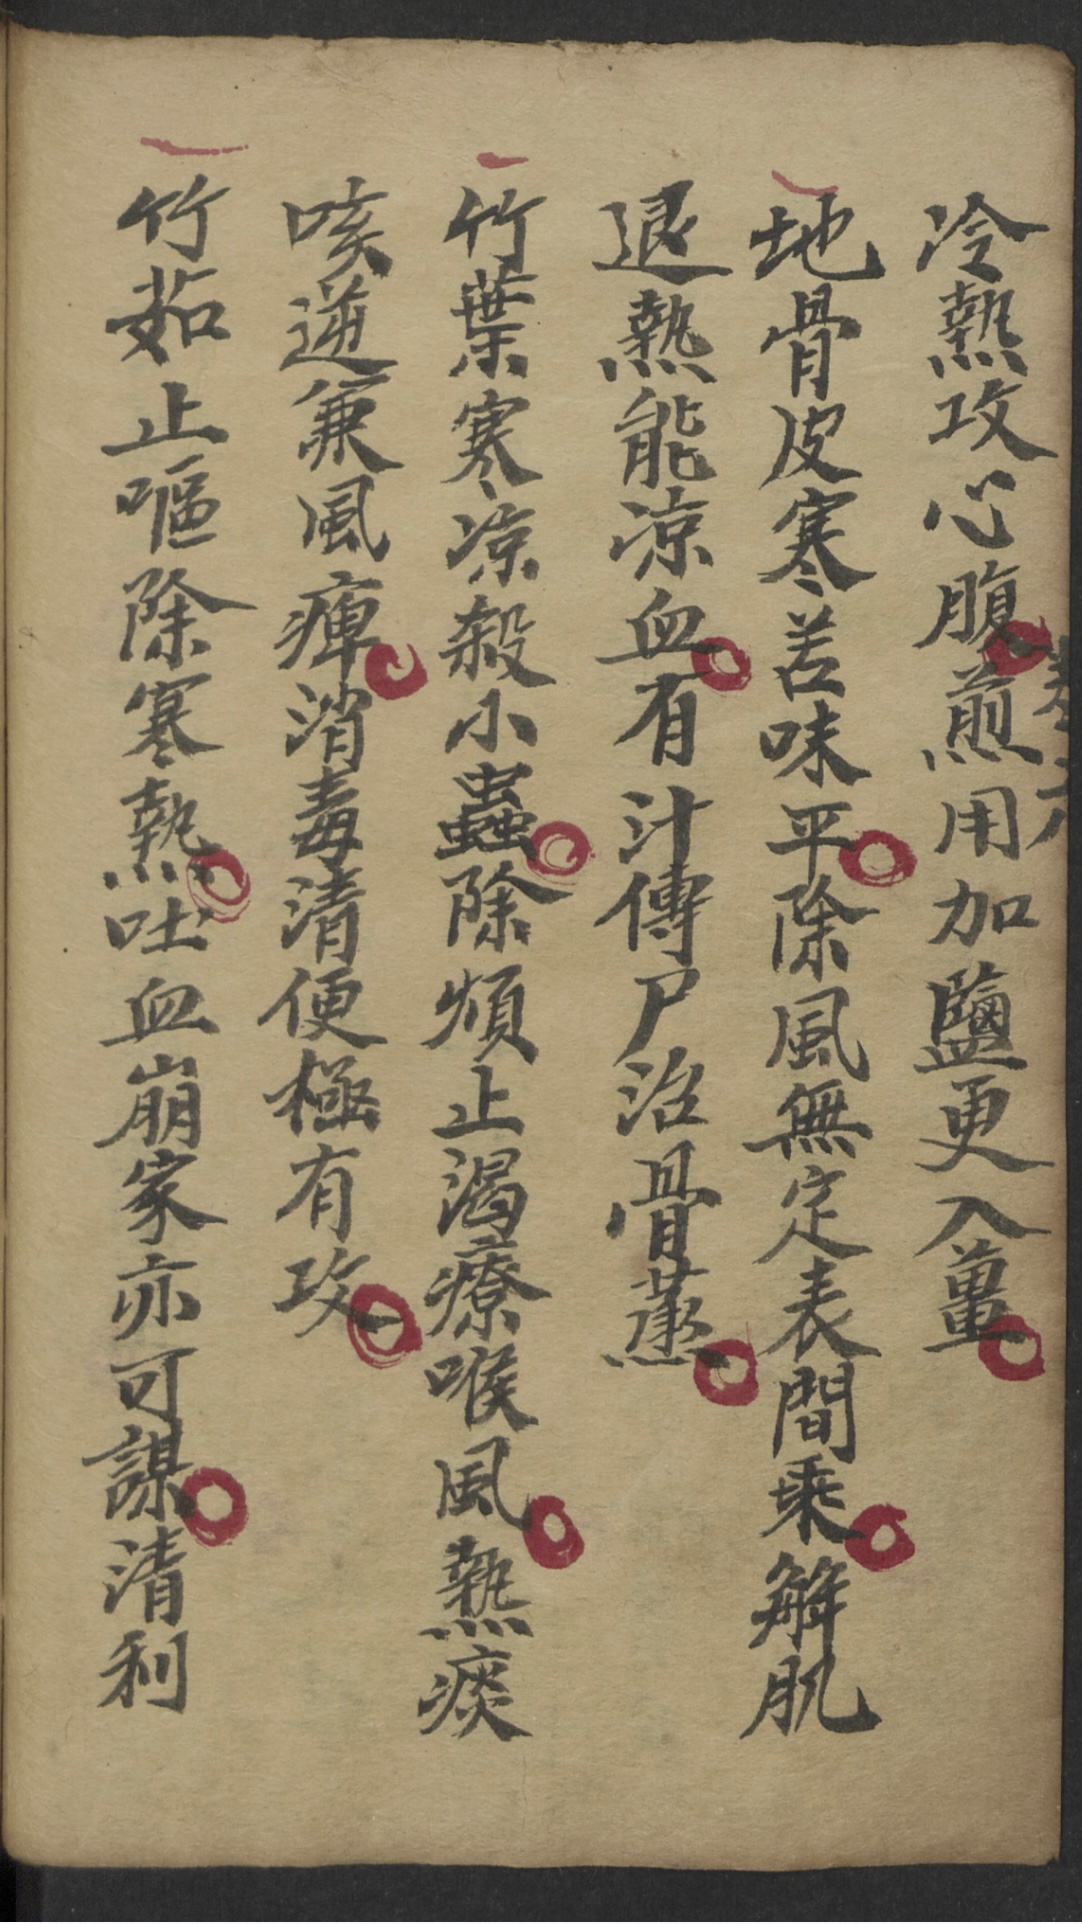 冷熱攻心腹煎用加鹽更入薑
地骨皮寒苦味平除風無定表間乘解肌
退熱能凉血有汁傳尸治骨蒸
竹葉寒凉殺小蟲除煩止渴療喉風熱痰
咳逆兼風痺消毒清便極有攻
竹茹止嘔除寒熱吐血崩家亦可謀清利